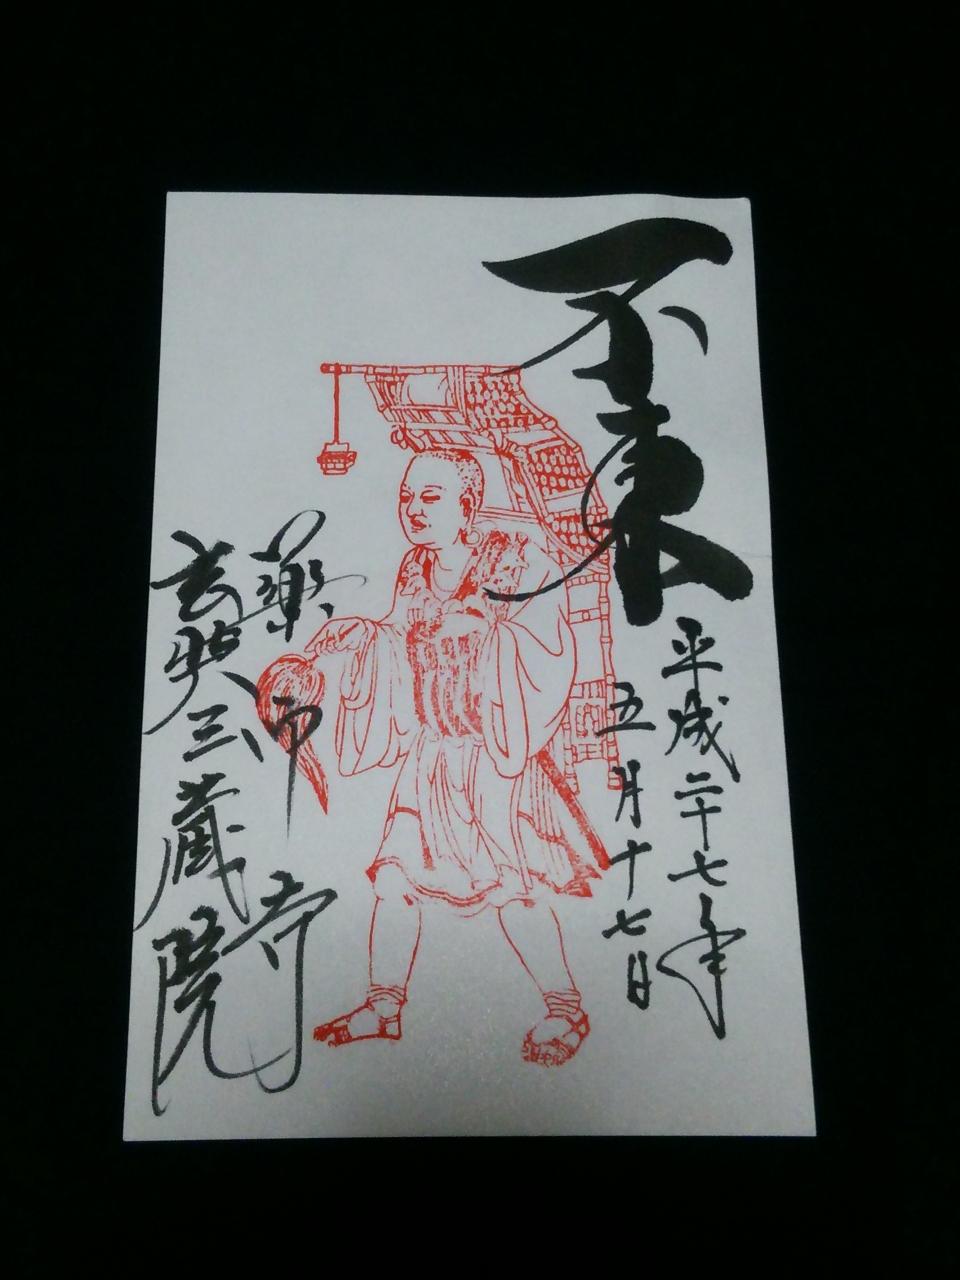 不東
平成二十七年
五月十七日
薬師寺
玄奘三蔵院